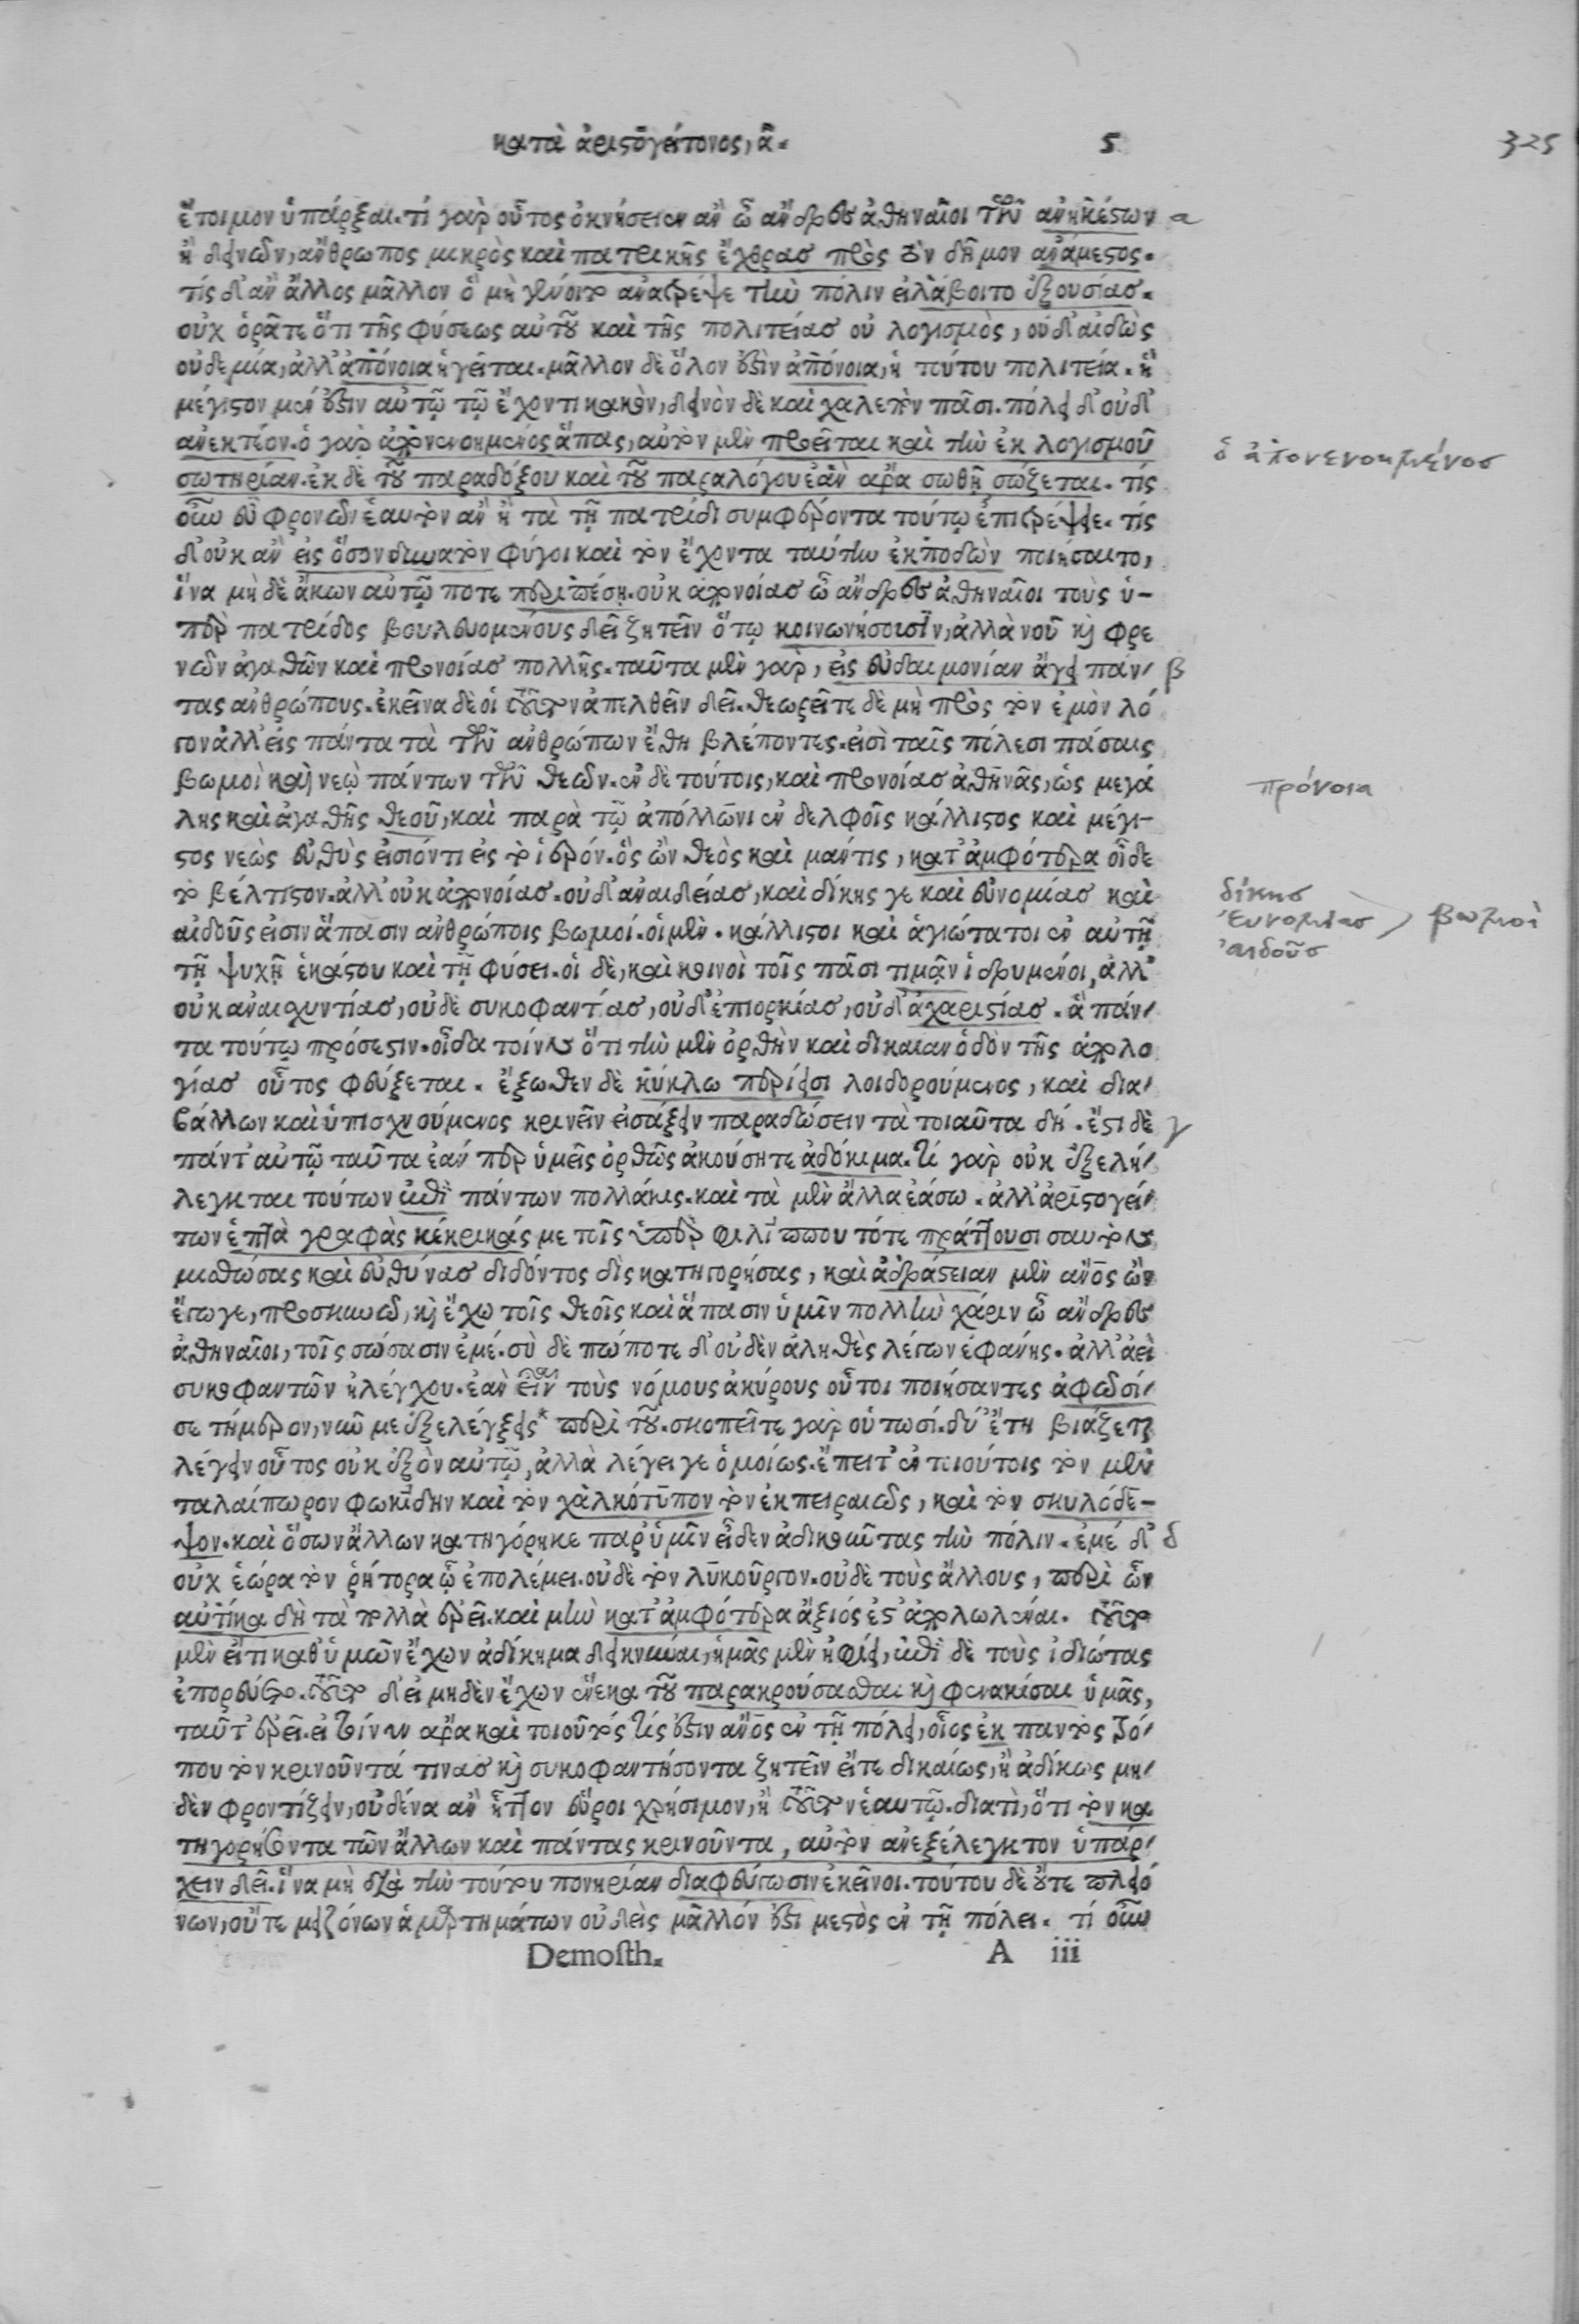 κατὰ ἀριστογείτονος, ᾱ. 5 325
ἕτοιμον ὑπάρξαι. τί γὰρ οὗτος ὀκνήσειεν ἂν ὦ ἄνδρες ἀθηναῖοι τῶν ἀνηκέστων α
ἢ δεινῶν, ἄνθρωπος μικρὸς καὶ πατρικῆς ἔχθρας πρὸς τὸν δῆμον ἀνάμεστος.
τίς δ' ἂν ἄλλος μᾶλλον ὃ μὴ γένοιτο ἀναστρέψειε τὴν πόλιν εἰ λάβοιτο ἐξουσίας.
οὐχ ὁρᾶτε ὅτι τῆς φύσεως αὐτοῦ καὶ τῆς πολιτείας οὐ λογισμὸς, οὐδ' αἰδὼς
οὐδεμία, ἀλλ' ἀπόνοια ἡγεῖται. μᾶλλον δὲ ὅλον ἐστὶν ἀπόνοια, ἡ τούτου πολιτεία. ἣ
μέγιστον μέν ἐστιν αὐτῷ τῷ ἔχοντι κακὸν, δεινὸν δὲ καὶ χαλεπὸν πᾶσι. πόλει δ' οὐδ'
ἀνεκτέον. ὁ γὰρ ἀπονενοημένος ἅπας, αὑτὸν μὲν προεῖται καὶ τὴν ἐκ λογισμοῦ ὁ ἀπονενοημένος
σωτηρίαν. ἐκ δὲ τοῦ παραδόξου καὶ τοῦ παραλόγου ἐὰν ἄρα σωθῇ σώζεται. τίς
οὖν εὖ φρονῶν ἑαυτὸν ἂν ἢ τὰ τῇ πατρίδι συμφέροντα τούτῳ ἐπιτρέψειε. τίς
δ' οὐκ ἂν εἰς ὅσον δυνατὸν φύγοι καὶ τὸν ἔχοντα ταύτην ἐκποδὼν ποιήσαιτο,
ἵνα μὴ δὲ ἄκων αὐτῷ ποτε περιπέσῃ. οὐκ ἀπονοίας ὦ ἄνδρες ἀθηναῖοι τοὺς ὑ-
πὲρ πατρίδος βουλευομένους δεῖ ζητεῖν ὅτῳ κοινωνήσουσιν, ἀλλὰ νοῦ καὶ φρε
νῶν ἀγαθῶν καὶ προνοίας πολλῆς. ταῦτα μὲν γὰρ, εἰς εὐδαιμονίαν ἄγει πάν- β
τας ἀνθρώπους. ἐκεῖνα δὲ οἷ τοῦτον ἀπελθεῖν δεῖ. θεωρεῖτε δὲ μὴ πρὸς τὸν ἐμὸν λό
γον ἀλλ' εἰς πάντα τὰ τῶν ἀνθρώπων ἔθη βλέποντες. εἰσὶ ταῖς πόλεσι πάσαις
βωμοὶ καὶ νεῲ πάντων τῶν θεῶν. ἐν δὲ τούτοις, καὶ προνοίας ἀθηνᾶς, ὡς μεγά πρόνοια
λης καὶ ἀγαθῆς θεοῦ, καὶ παρὰ τῷ ἀπόλλωνι ἐν δελφοῖς κάλλιστος καὶ μέγι-
στος νεὼς εὐθὺς εἰσιόντι εἰς τὸ ἱερόν. ὃς ὢν θεὸς καὶ μάντις, κατ' ἀμφότερα οἶδε
τὸ βέλτιστον. ἀλλ' οὐκ ἀπονοίας. οὐδ' ἀναιδείας, καὶ δίκης γε καὶ εὐνομίας καὶ δίκης
εὐνομίας
αἰδοῦς
βωμοὶ
αἰδοῦς εἰσιν ἅπασιν ἀνθρώποις βωμοί. οἱ μὲν. κάλλιστοι καὶ ἁγιώτατοι ἐν αὐτῇ
τῇ ψυχῇ ἑκάστου καὶ τῇ φύσει. οἱ δὲ, καὶ κοινοὶ τοῖς πᾶσι τιμᾷν ἱδρυμένοι, ἀλλ'
οὐκ ἀναισχυντίας, οὐδὲ συκοφαντίας, οὐδ' ἐπιορκίας, οὐδ' ἀχαριστίας. ἃ πάν-
τα τούτῳ πρόσεστιν. οἶδα τοίνυν ὅτι τὴν μὲν ὀρθὴν καὶ δικαίαν ὁδὸν τῆς ἀπολο
γίας οὗτος φεύξεται. ἔξωθεν δὲ κύκλω περίεισι λοιδορούμενος, καὶ δια-
βάλλων καὶ ὑπισχνούμενος κρινεῖν εἰσάξειν παραδώσειν τὰ τοιαῦτα δή. ἔστι δὲ γ
πάντ' αὐτῷ ταῦτα ἐάν περ ὑμεῖς ὀρθῶς ἀκούσητε ἀδόκιμα. τί γὰρ οὐκ ἐξελή-
λεγκται τούτων ἐπὶ πάντων πολλάκις. καὶ τὰ μὲν ἄλλα ἐάσω. ἀλλ' ἀριστογεί-
των ἑπτὰ γραφὰς κέκρικάς με τοῖς ὑπὲρ φιλίππου τότε πράττουσι σαυτὸν
μισθώσας καὶ εὐθύνας διδόντος δὶς κατηγορήσας, καὶ ἀδράστειαν μὲν ἄνος ὢν
ἔγωγε, προσκυνῶ, καὶ ἔχω τοῖς θεοῖς καὶ ἅπασιν ὑμῖν πολλὴν χάριν ὦ ἄνδρες
ἀθηναῖοι, τοῖς σώσασιν ἐμέ. σὺ δὲ πώποτε δ' οὐδὲν ἀληθὲς λέγων ἐφάνης. ἀλλ' ἀεὶ
συκοφαντῶν ἠλέγχου. ἐὰν τοὺς νόμους ἀκύρους οὗτοι ποιήσαντες ἀφῶσί-
σε τήμερον, νῦν με ἐξελέγξεις* περὶ τοῦ. σκοπεῖτε γὰρ οὑτωσί. δύ' ἔτη βιάζεται
λέγειν οὗτος οὐκ ἐξὸν αὐτῷ, ἀλλὰ λέγει γε ὁμοίως. ἔπειτ' ἐν τοιούτοις τὸν μὲν
ταλαίπωρον φωκίδην καὶ τὸν χαλκότυπον τὸν ἐκ πειραιῶς, καὶ τὸν σκυλόδε-
ψον. καὶ ὅσων ἄλλων κατηγόρηκε παρ' ὑμῖν εἶδεν ἀδικοῦντας τὴν πόλιν. ἐμέ δ' δ
οὐχ ἑώρα τὸν ῥήτορα ᾧ ἐπολέμει. οὐδὲ τὸν λυκοῦργον. οὐδὲ τοὺς ἄλλους, περὶ ὧν
αὐτίκα δὴ τὰ πολλὰ ἐρεῖ. καὶ μὴν κατ' ἀμφότερα ἄξιός ἐστ' ἀπολωλέναι. τοῦτο
μὲν εἴ τι καθ' ὑμῶν ἔχων ἀδίκημα δεικνύναι, ἡμᾶς μὲν ἠφίει, ἐπὶ δὲ τοὺς ἰδιώτας
ἐπορεύετο. τοῦτο δ' εἰ μηδὲν ἔχων ἕνεκα τοῦ παρακρούσασθαι καὶ φενακίσαι ὑμᾶς,
ταῦτ' ἐρεῖ. εἰ τοίνυν ἄρα καὶ τοιοῦτός τίς ἐστιν ἄνος ἐν τῇ πόλει, οἷος ἐκ παντὸς τρό-
που τὸν κρινοῦντά τινας καὶ συκοφαντήσοντα ζητεῖν εἴτε δικαίως, ἢ ἀδίκως μη-
δὲν φροντίζειν, οὐδένα ἂν ἧττον εὕροι χρήσιμον, ἢ τοῦτον ἑαυτῷ. διατὶ, ὅτι τὸν κα
τηγορήσοντα τῶν ἄλλων καὶ πάντας κρινοῦντα, αὐτὸν ἀνεξέλεγκτον ὑπάρ-
χειν δεῖ. ἵνα μὴ διὰ τὴν τούτου πονηρίαν διαφεύγωσιν ἐκεῖνοι. τούτου δὲ οὔτε πλειό
νων, οὔτε μειζόνων ἁμαρτημάτων οὐδεὶς μᾶλλόν ἐστι μεστὸς ἐν τῇ πόλει. τί οὖν
Demosth. A iii